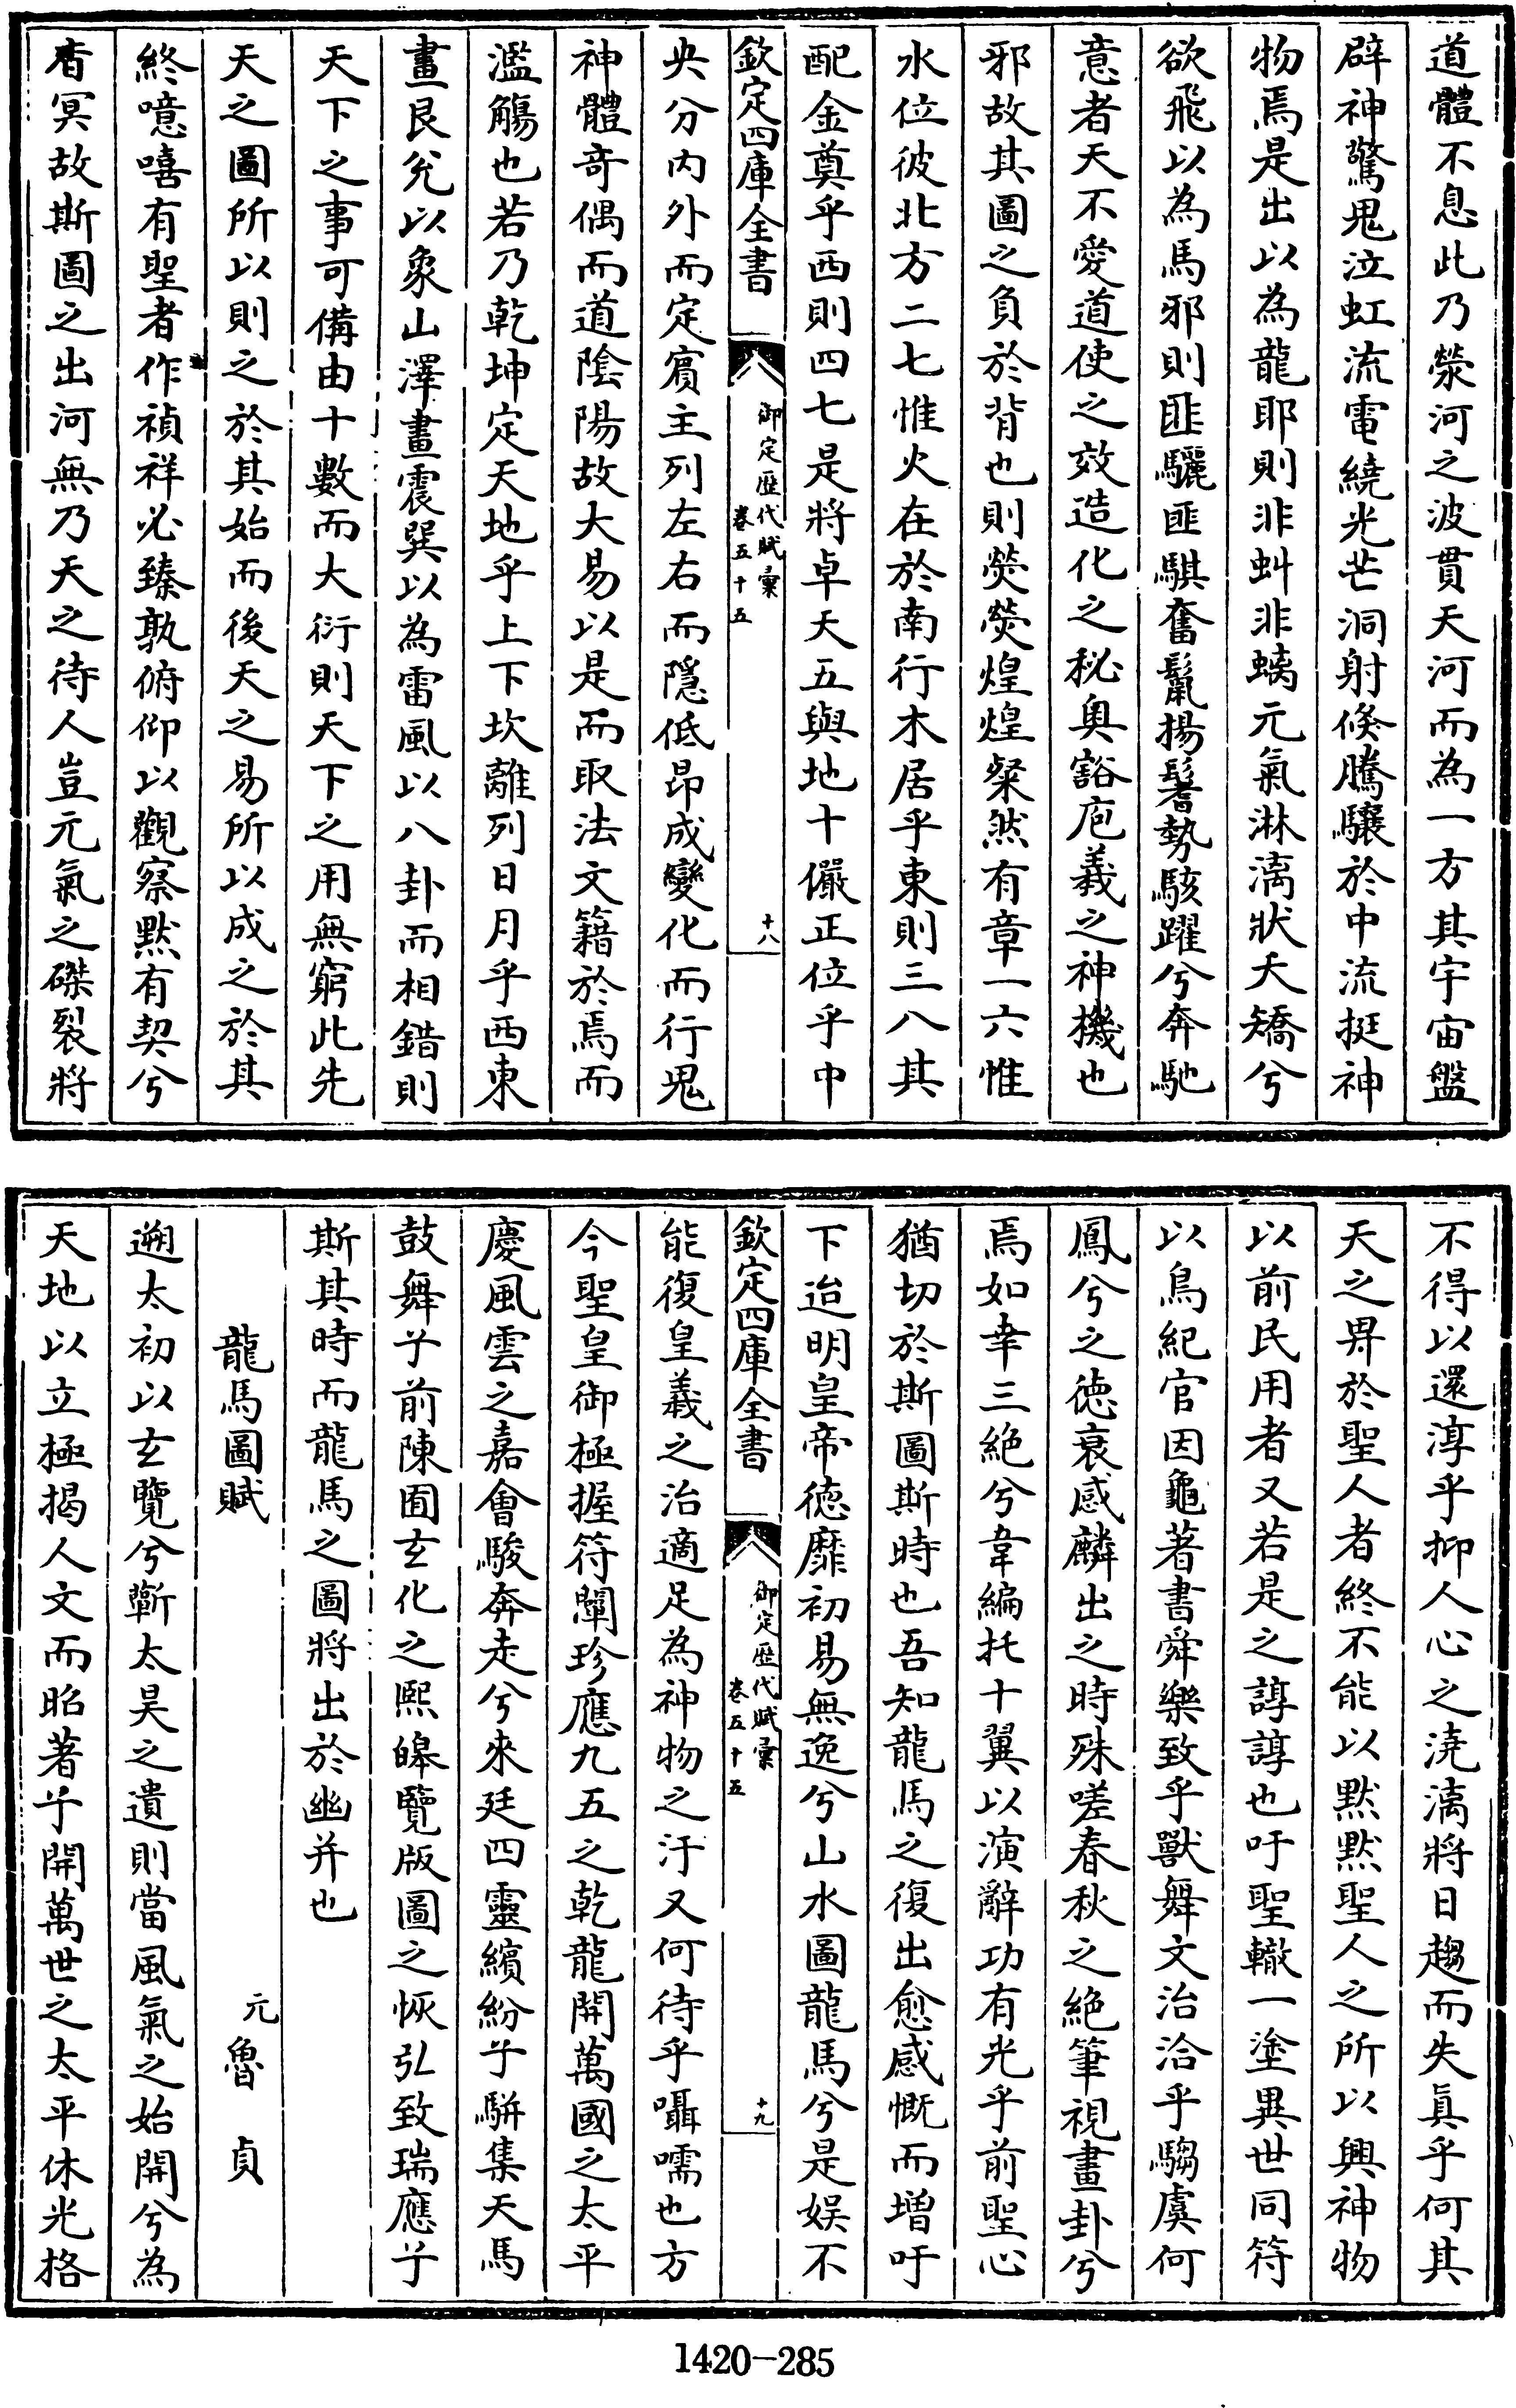 道體不息此乃滎河之波貫天河而為一方其宇宙盤
辟神驚鬼泣虹流電繞光芒洞射倐騰驤於中流挺神
物焉是出以為龍耶則非虯非螭元氣淋漓狀夭矯兮
欲飛以為馬邪則匪驪匪騏奮鬣揚鬐勢駭躍兮奔馳
意者天不愛道使之效造化之秘奥豁庖羲之神機也
邪故其圖之負於背也則熒熒煌煌粲然有章一六惟
水位彼北方二七惟火在於南行木居乎東則三八其
配金奠乎西則四七是將卓天五與地十儼正位乎中
欽定四庫全書
御定歴代賦彙
卷五十五
十八
央分内外而定賓主列左右而隱低昂成變化而行鬼
神體竒偶而道陰陽故大易以是而取法文籍於焉而
濫觴也若乃乾坤定天地乎上下坎離列日月乎西東
畫艮兊以象山澤畫震巽以為雷風以八卦而相錯則
天下之事可備由十數而大衍則天下之用無窮此先
天之圖所以則之於其始而後天之易所以成之於其
終噫嘻有聖者作禎祥必臻孰俯仰以觀察黙有契兮
杳冥故斯圖之出河無乃天之待人豈元氣之磔裂將
不得以還淳乎抑人心之澆漓將日趨而失真乎何其
天之畀於聖人者終不能以黙黙聖人之所以興神物
以前民用者又若是之諄諄也吁聖轍一塗異世同符
以鳥紀官因龜著書舜樂致乎獸舞文治洽乎騶虞何
鳳兮之徳衰感麟出之時殊嗟春秋之絶筆視畫卦兮
焉如幸三絶兮韋編托十翼以演辭功有光乎前聖心
猶切於斯圖斯時也吾知龍馬之復出愈感慨而増吁
下迨明皇帝徳靡初易無逸兮山水圖龍馬兮是娱不
欽定四庫全書
御定歴代賦彙
卷五十五
十九
能復皇羲之治適足為神物之汙又何待乎囁嚅也方
今聖皇御極握符闡珍應九五之乾龍開萬國之太平
慶風雲之嘉會駿奔走兮來廷四靈繽紛乎駢集天馬
鼓舞乎前陳囿玄化之熙皥覽版圖之恢弘致瑞應乎
斯其時而龍馬之圖將出於幽并也
龍馬圖賦
元魯貞
遡太初以玄覽兮蘄太昊之遺則當風氣之始開兮為
天地以立極揭人文而昭著乎開萬世之太平休光格
1420-285